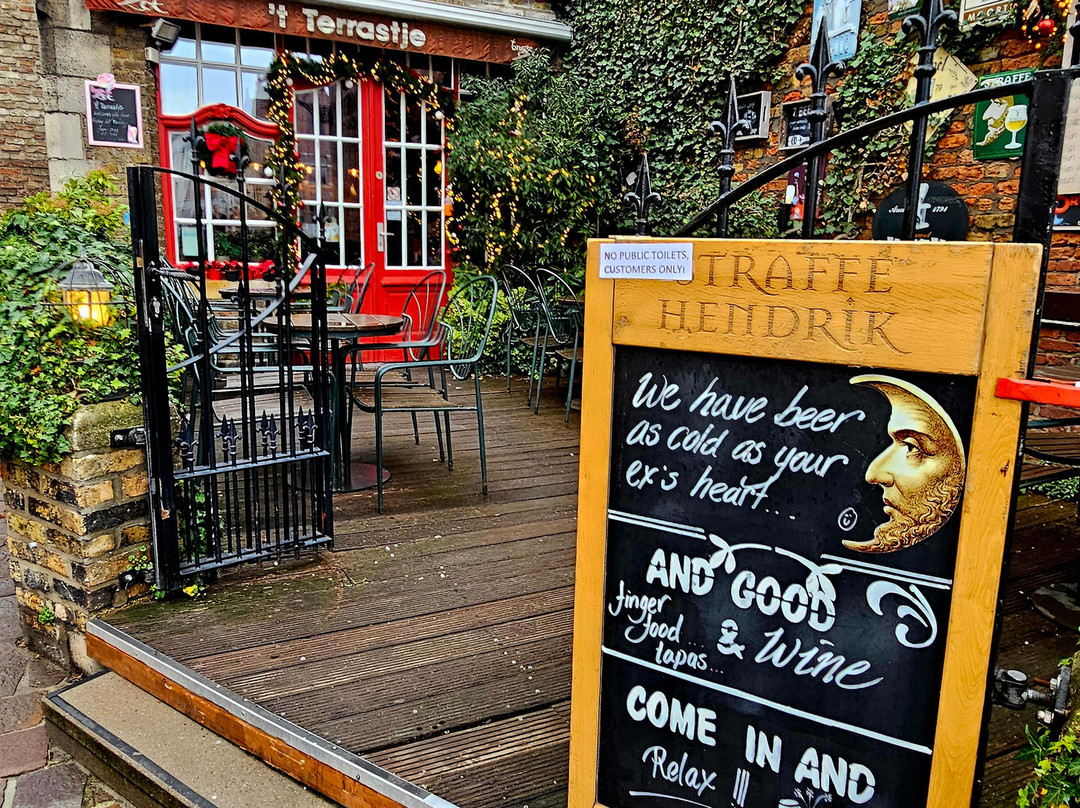 't Terrastje
't Terrastje
STRAFFE
NO PUBLIC TOILETS,
CUSTOMERS ONLY!
STRAFFE
HENDRIK
We have beer
as cold as your
ex's heart....
AND GOOD
finger
food...
tapas...
& Wine
COME IN AND
Relax